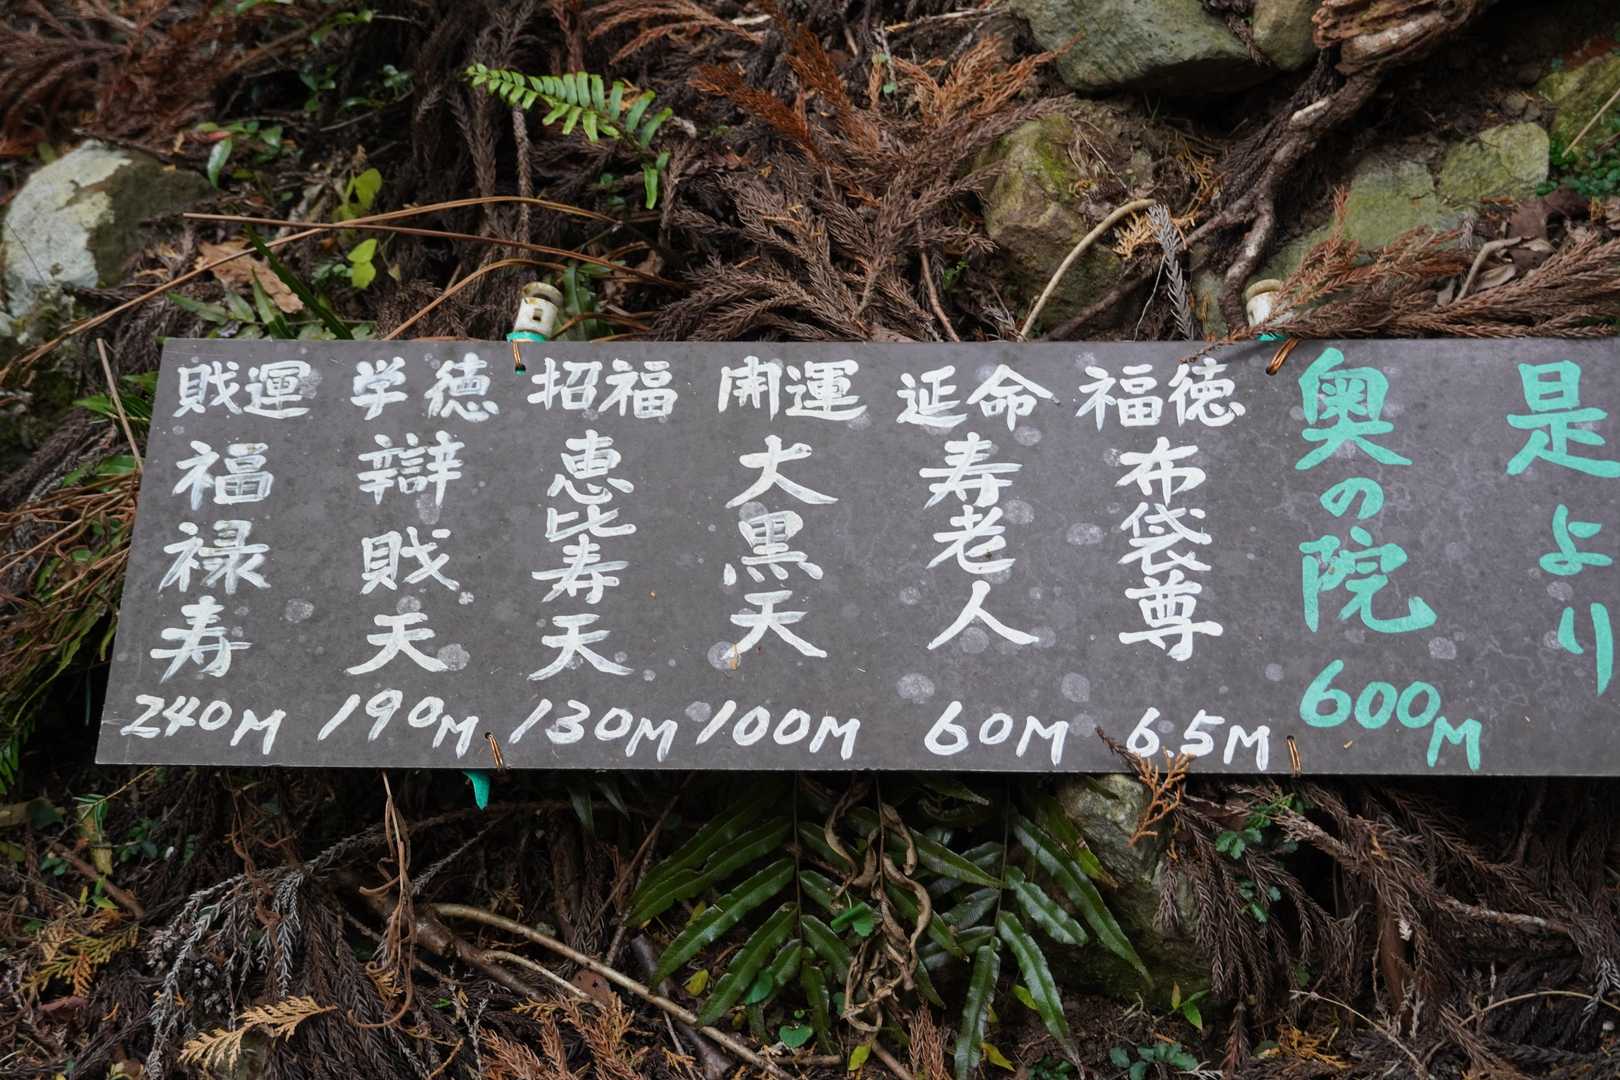 是より
奥の院
600M
福徳
布袋尊
65M
延命
寿老人
60M
開運
大黒天
100M
招福
恵比寿天
130M
学徳
辯戝天
190M
戝運
福禄寿
240M